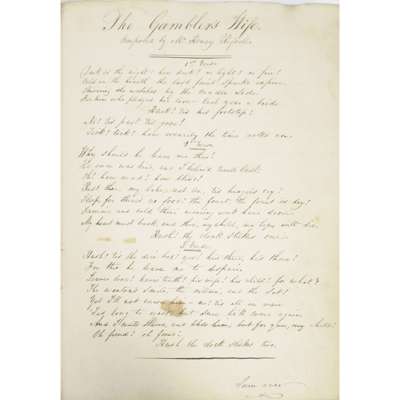 The Gambler's Wife.
Composed by Mr. Henry Russell.
1st Verse
Dark is the night! how dark! no light! no fire!
Cold on the hearth the last faint sparks expire.
Shivering she watches by the cradle side
For him who pledged her love - last year a bride
Hark! 'tis his footstep!
No! 'tis past 'tis gone!
Tick! tick! how wearily the time rolls on.
2 Verse
Why should he leave me thus!
He once was kind, and I believed 'twould last.
Oh! how mad! how blind!
Rest thee my babe, rest on, 'tis hunger's cry!
Sleep for there's no food! the fount the fount is dry!
Famine and cold their wearying work have done.
My heart must break, and thou, my child,
Hush! the clock strikes one.
3 Verse
Hush! 'tis the dice box! yes! he's there, he's there!
For this he leaves me to despair.
Leaves love! leaves truth! his wife! his child! for what?
The wanton's smile, the villain, and the sot!
Yet I'll not curse him - no! 'tis all in vain.
'Tis long to wait but sure he'll come again.
And I could starve, and bless him, but for you, my child!
Oh fiend! oh fiend!
Hush the clock strikes two.